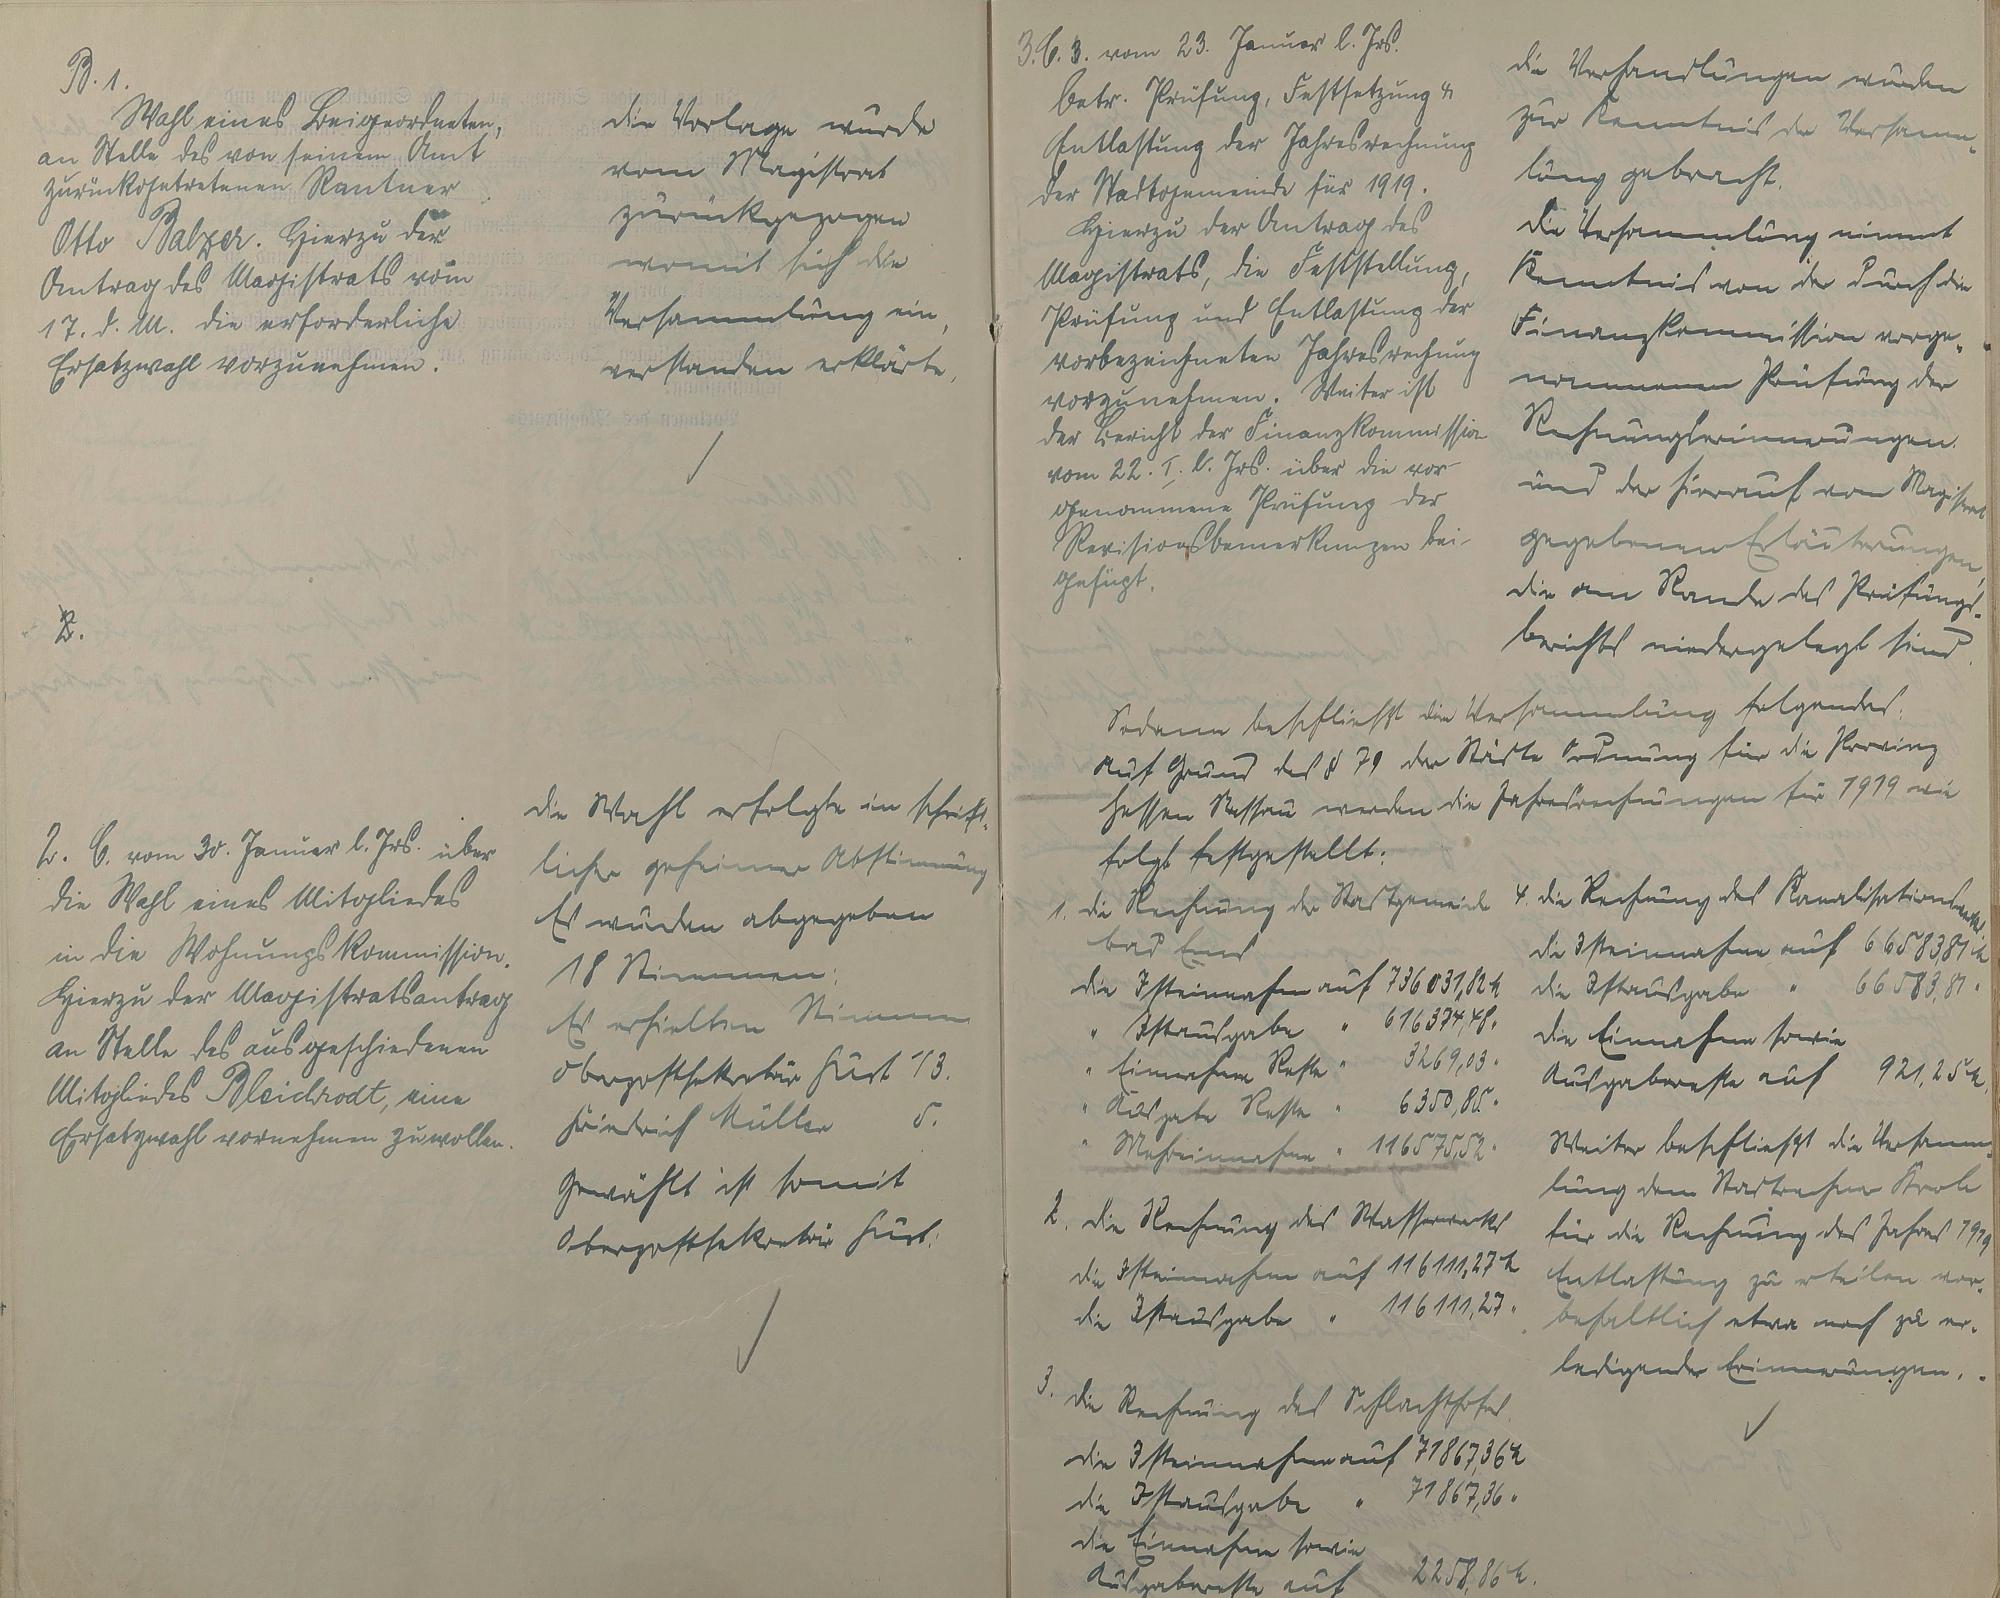 B. 1.
Wahl eines Beigeordneten,
an Stelle des von seinem Amt
zurückgetretenen Rentner
Otto Balzer. Hierzu der
Antrag des Magistrats vom
17. d. M. die erforderliche
Ersatzwahl vorzunehmen.
die Vorlage wurde
vom Magistrat
zurückgezogen
womit sich die
Versammlung ein,
verstanden erklärte,
2. C. vom 30. Januar l. Jrs. über
die Wahl eines Mitgliedes
in die Wohnungskommission.
Hierzu der Magistratsantrag
an Stelle des ausgeschiedenen
Mitgliedes Bleichrodt, eine
Ersatzwahl vornehmen zu wollen.
die Wahl erfolgte in schrift-
licher geheimer Abstimmung
Es wurden abgegeben
18 Stimmen:
Es erhielten Stimmen
Oberpostsekretär Hürt 13.
Friedrich Müller 5.
Gewählt ist somit
Oberpostsekretär Hürt.
3. C. 3. vom 23. Januar l. Jrs.
betr. Prüfung, Festsetzung &
Entlastung der Jahresrechnung
der Stadtgemeinde für 1919.
Hierzu der Antrag des
Magistrats, die Feststellung,
Prüfung und Entlastung der
vorbezeichneten Jahresrechnung
vorzunehmen. Weiter ist
der Bericht der Finanzkommission
vom 22. I. l. Jrs. über die vor-
genommene Prüfung der
Revisionsbemerkungen bei-
gefügt.
die Verhandlungen wurden
zur Kenntnis der Versamm-
lung gebracht.
die Versammlung nimmt
Kenntnis von der durch die
Finanzkommission vorge-
nommenen Prüfung der
Rechnungserinnerungen
und der hierauf vom Magistrat
gegebenen Erläuterungen,
die am Rande des Prüfungs-
berichts niedergelegt sind.
Sodann beschließt die Versammlung folgendes:
Auf Grund des § 79 der Städte Ordnung für die Provinz
Hessen Nassau werden die Jahresrechnungen für 1919 wie
folgt festgestellt:
1. die Rechnung der Stadtgemeinde
Bad Ems
die Isteinnahme auf 736031,82 M
" Istausgabe " 616374,48 "
" Einnahme Reste " 3269,03 "
" Ausgabe Reste " 6350,85 "
" Mehreinnahme " 116575,52 "
2. die Rechnung des Wasserwerks
die Isteinnahme auf 116111,27 M
die Istausgabe " 116111,27 "
3. die Rechnung des Schlachthofes
die Isteinnahme auf 71867,36 M
die Istausgabe " 71867,36 "
die Einnahme sowie
Ausgabereste auf 2258,86 M.
4. die Rechnung des Kanalisationswerkes
die Isteinnahme auf 66583,81 M
die Istausgabe " 66583,81 "
die Einnahme sowie
Ausgabereste auf 921,25 M.
Weiter beschließt die Versamm-
lung dem Stadtrechner
für die Rechnung des Jahres 1919
Entlastung zu erteilen vor-
behaltlich etwa noch zu er-
ledigender Erinnerungen.